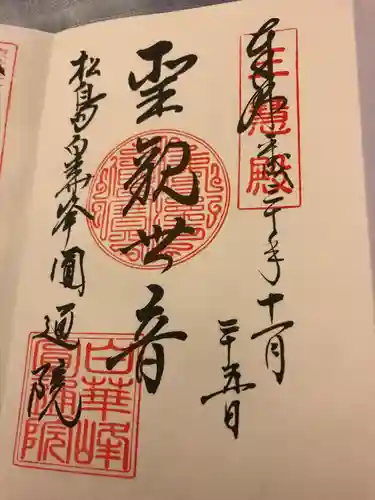 奉拝 平成二十年十一月
二十五日
大悲殿
聖観世音
松島白華峰圓通院
白華峰
圓通院